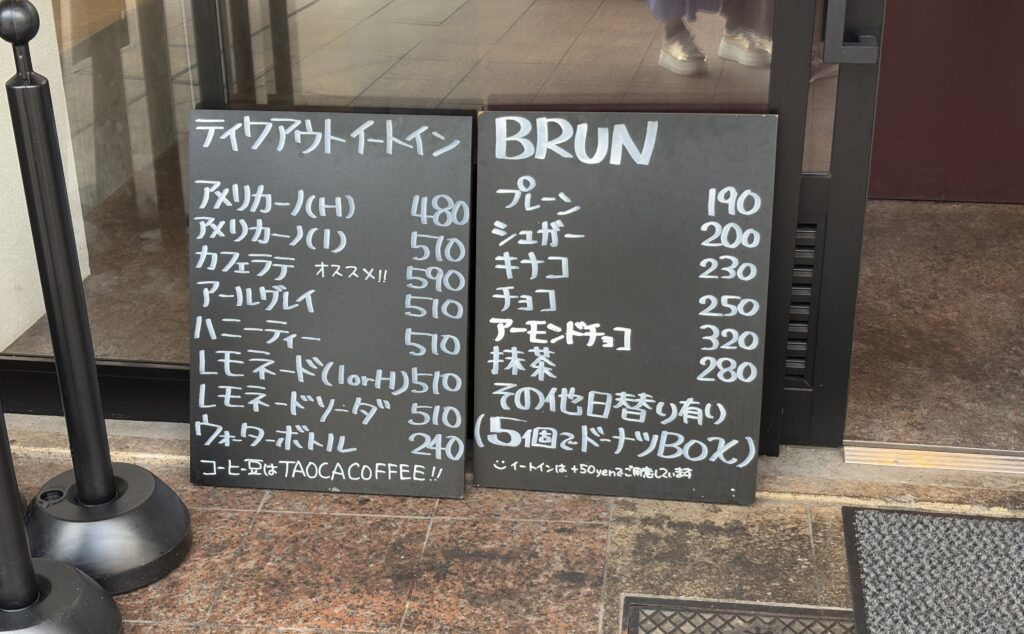 テイクアウト イートイン
アメリカーノ(H) 480
アメリカーノ(I) 510
カフェラテ オススメ!! 590
アールグレイ 510
ハニーティー 510
レモネード(IorH) 510
レモネードソーダ 510
ウォーターボトル 240
コーヒー豆はTAOCACOFFEE!!
BRUN
プレーン 190
シュガー 200
キナコ 230
チョコ 250
アーモンドチョコ 320
抹茶 280
その他日替り有り
(5個でドーナツBOX)
イートインは +50yenでご用意しています